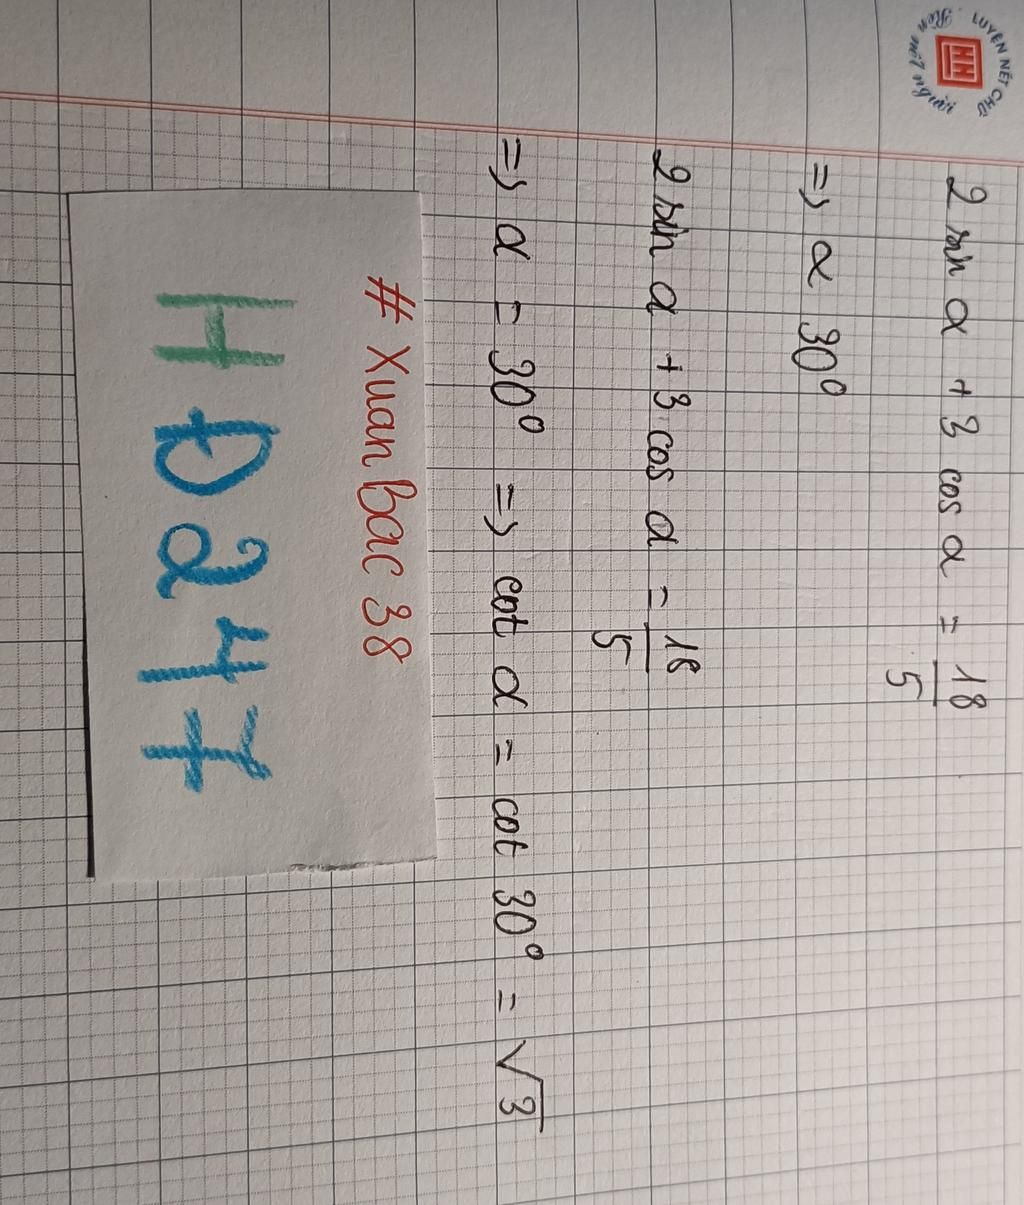 LUYỆN NÉT CHỮ
Rèn nết người
HH
2 sin α + 3 cos α = 18/5
=> α 30°
2 sin α + 3 cos α = 18/5
=> α = 30° => cot α = cot 30° = √3
# Xuan Bac 38
HĐ247